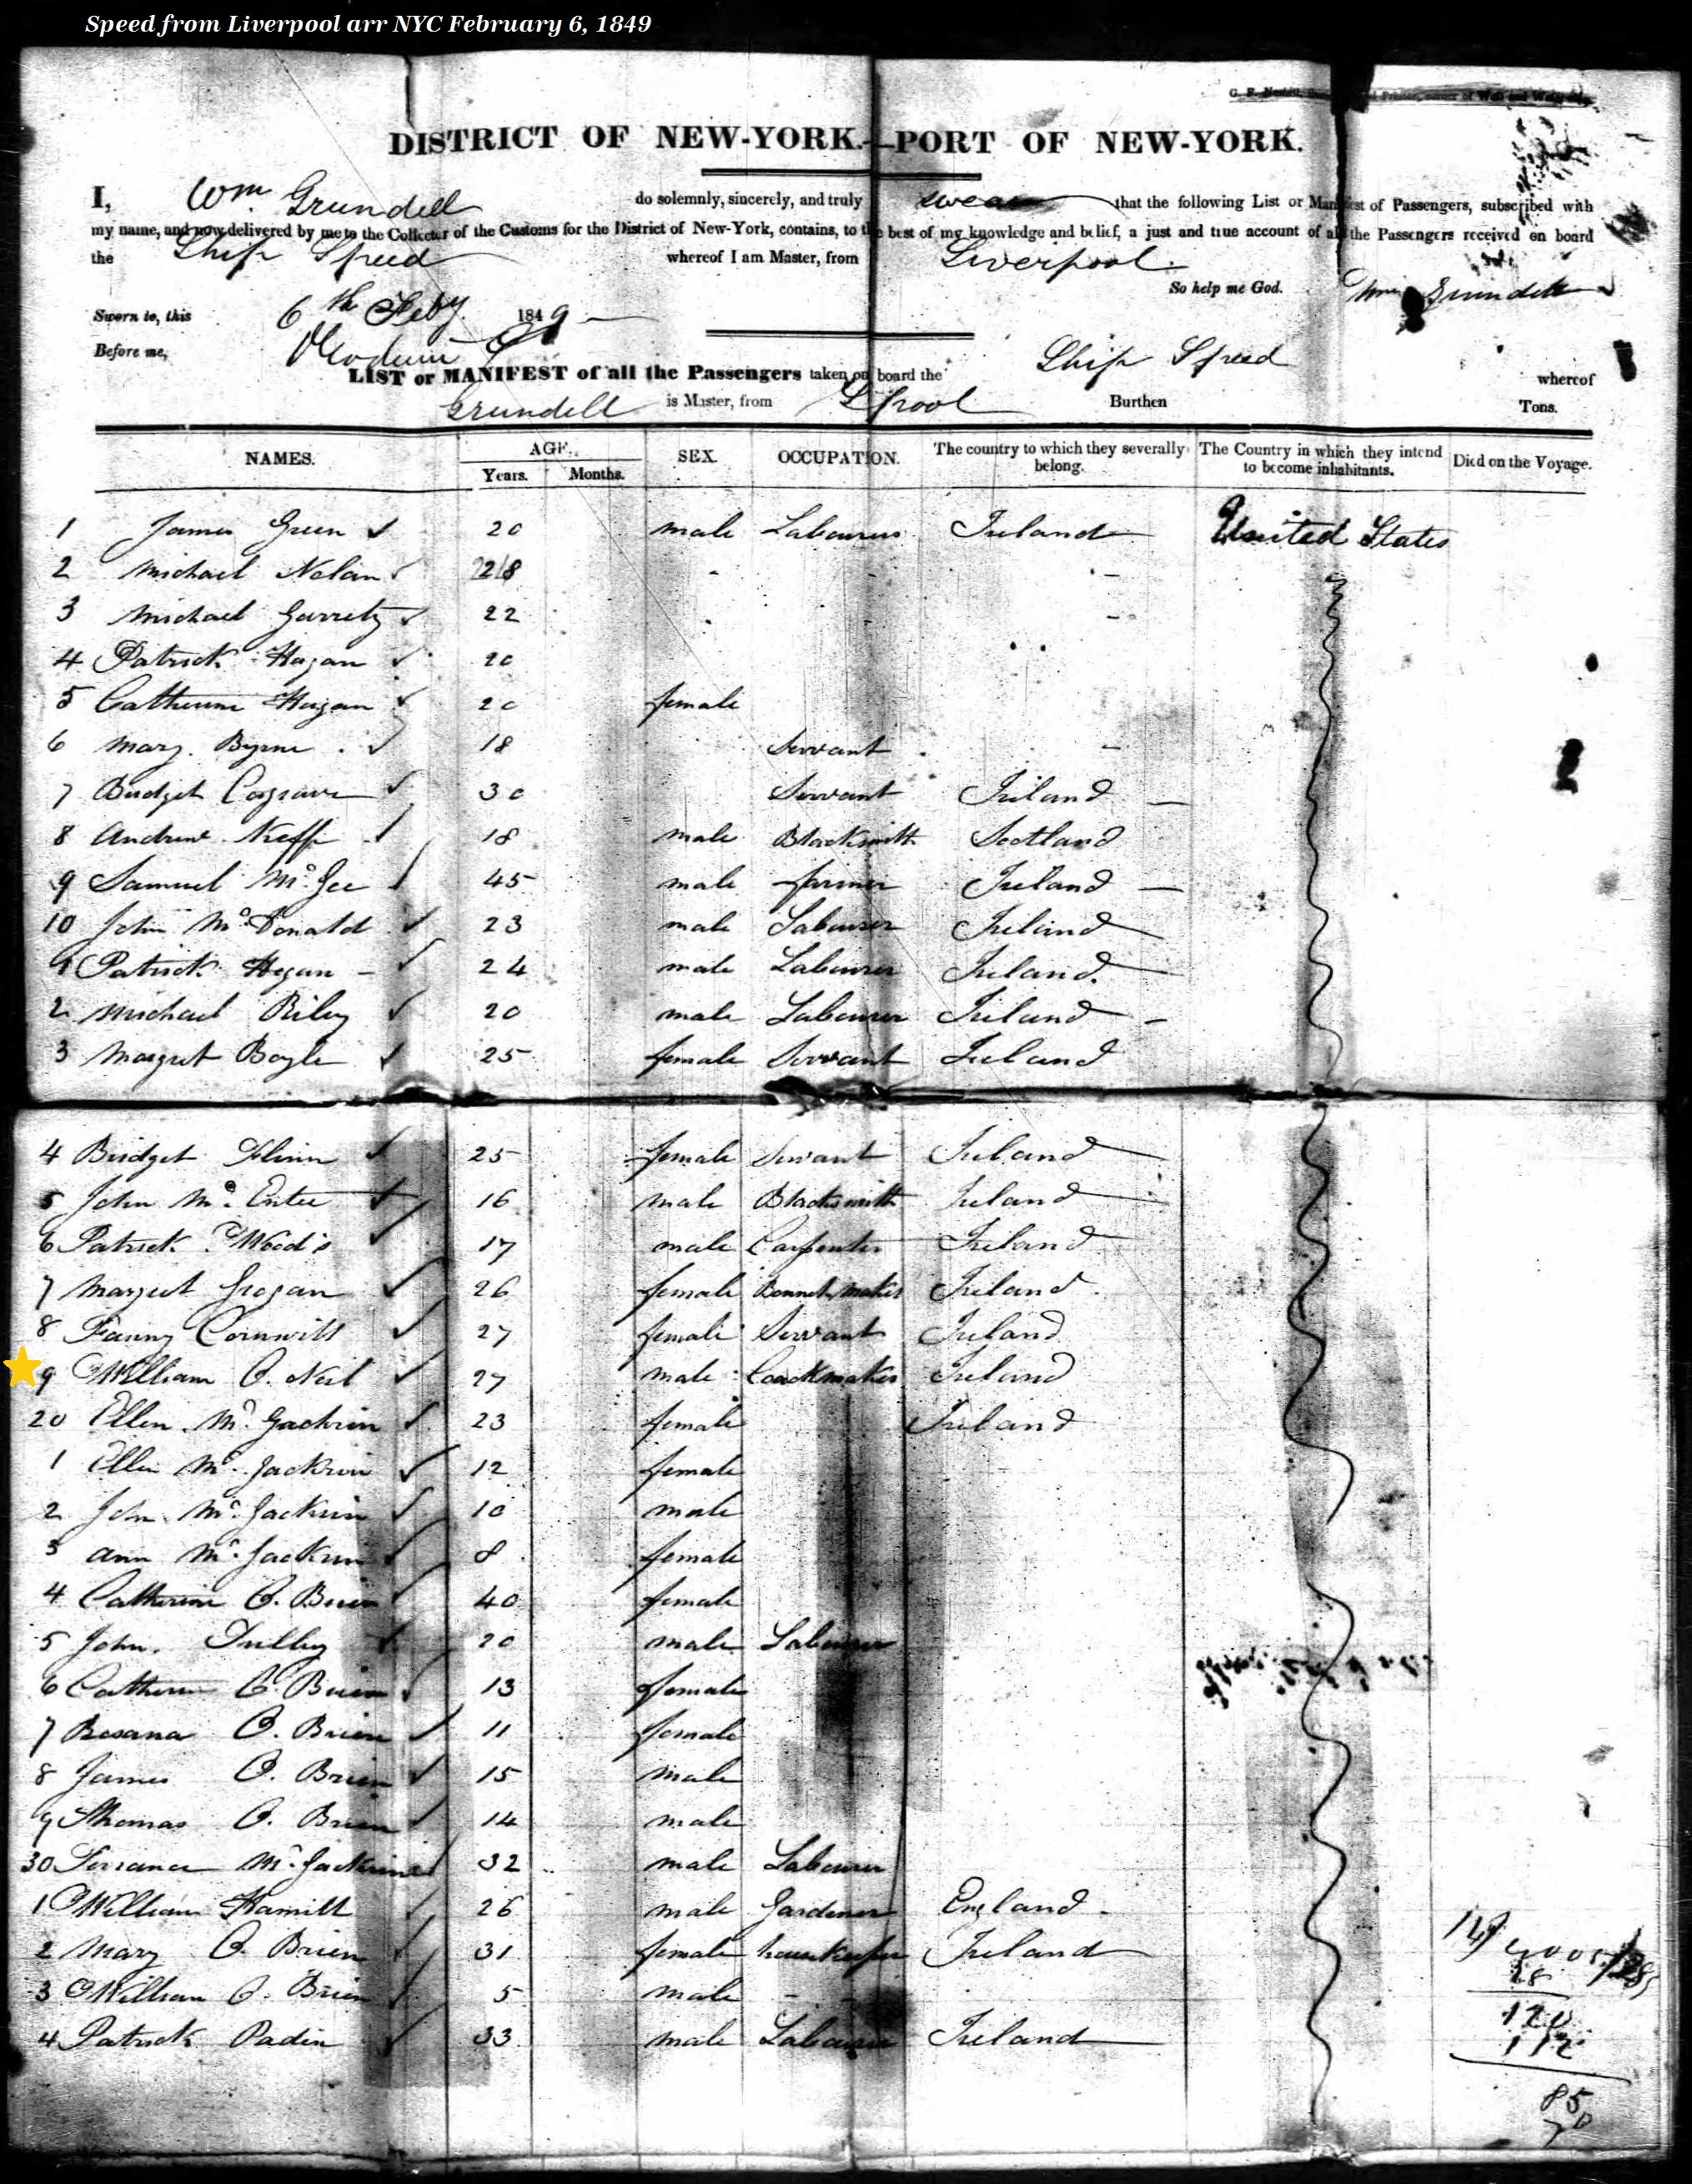 Speed from Liverpool arr NYC February 6, 1849
DISTRICT OF NEW-YORK.—PORT OF NEW-YORK.
I, Wm Grundell do solemnly, sincerely, and truly swear that the following List or Manifest of Passengers, subscribed with
my name, and now delivered by me to the Collector of the Customs for the District of New-York, contains, to the best of my knowledge and belief, a just and true account of all the Passengers received on board
the Ship Speed whereof I am Master, from Liverpool
So help me God. Wm Grundell
Sworn to, this 6th Feby. 1849
Before me,
LIST or MANIFEST of all the Passengers taken on board the Ship Speed whereof
Grundell is Master, from Lpool Burthen Tons.
NAMES. AGE. SEX. OCCUPATION. The country to which they severally belong. The Country in which they intend to become inhabitants. Died on the Voyage.
Years. Months.
1 James Green 20 male Labourer Ireland United States
2 Michael Nolan 28
3 Michael Garrety 22
4 Patrick Hagan 20
5 Catherine Hagan 20 female
6 Mary Byrne 18 Servant
7 Bridget Cosgrave 30 Servant Ireland
8 Andrew Neff 18 male Blacksmith Scotland
9 Samuel McGee 45 male farmer Ireland
10 John McDonald 23 male Labourer Ireland
1 Patrick Hegan 24 male Labourer Ireland
2 Michael Riley 20 male Labourer Ireland
3 Margret Boyle 25 female Servant Ireland
4 Bridget Flinn 25 female Servant Ireland
5 John McEntee 16 male Blacksmith Ireland
6 Patrick Wood's 17 male Carpenter Ireland
7 Margret Grogan 26 female Bonnet maker Ireland
8 Fanny Cornwill 27 female Servant Ireland
9 William O. Neil 27 male Coachmaker Ireland
20 Ellen McGackrin 23 female Ireland
1 Ellen McGackrin 12 female
2 John McGackrin 10 male
3 Ann McGackrin 8 female
4 Catherine O. Brien 40 female
5 John Tulley 20 male Labourer
6 Catherine O. Brien 13 female
7 Rosana O. Brien 11 female
8 James O. Brien 15 male
9 Thomas O. Brien 14 male
30 Terrance McGackrine 32 male Labourer
1 William Hamill 26 male Gardener England
2 Mary O. Brien 31 female housekeeper Ireland
3 William O. Brien 5 male
4 Patrick Padin 33 male Labourer Ireland
85
70